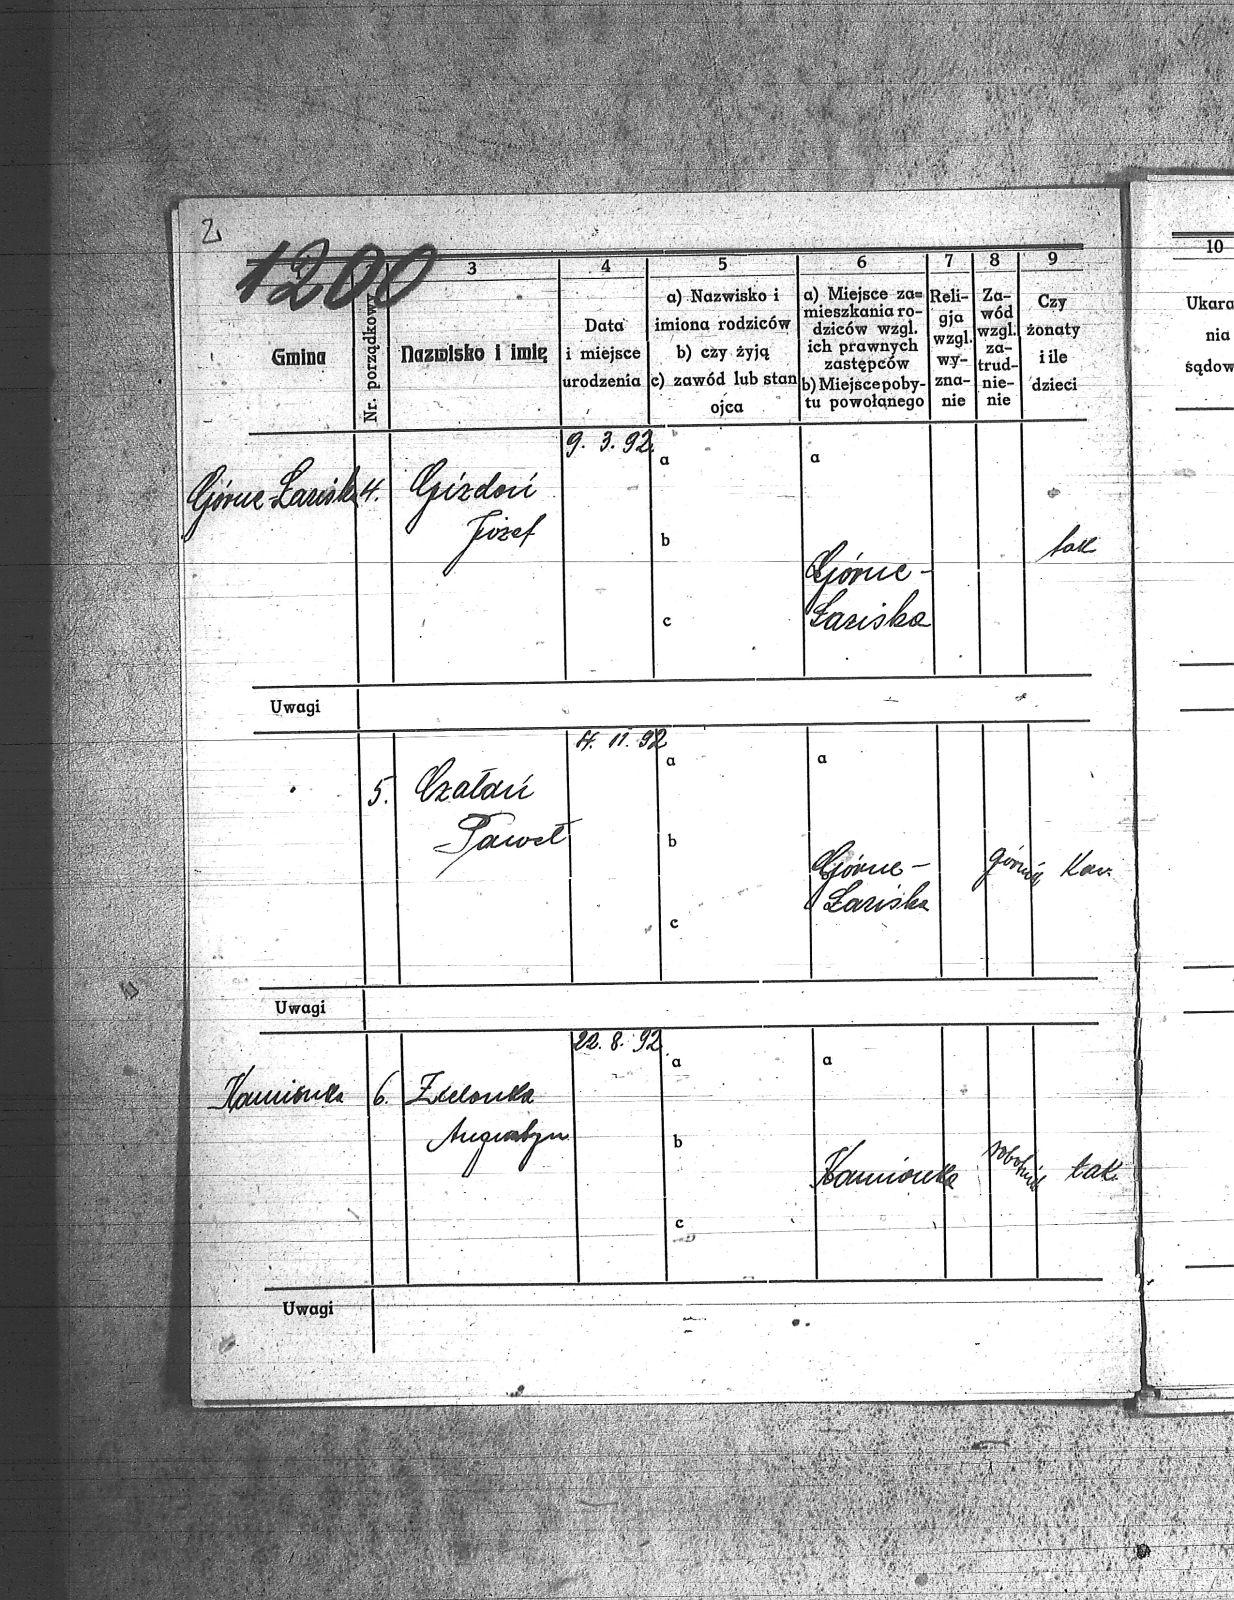 2
1200
3
4
5
6
7
8
9
10
Gmina
Nr. porządkowy
Nazwisko i imię
Data
i miejsce
urodzenia
a) Nazwisko i
imiona rodziców
b) czy żyją
c) zawód lub stan
ojca
a) Miejsce za=
mieszkania ro-
dziców wzgl.
ich prawnych
zastępców
b) Miejsce poby-
tu powołanego
Reli-
gja
wzgl.
wy-
zna-
nie
Za-
wód
wzgl.
za-
trud-
nie-
nie
Czy
żonaty
i ile
dzieci
Ukara
nia
sądow
9. 3. 92.
Górne Łaziska
4.
Gizdoń
Józef
a
b
c
a
Górne-
Łaziska
tak
Uwagi
4. 11. 92
5.
Czatań
Paweł
a
b
c
a
Górne-
Łaziska
górnik
Kaw.
Uwagi
22. 8. 92.
Kamionka
6.
Zielonka
Augustyn
a
b
c
a
Kamionka
robotnik
tak.
Uwagi